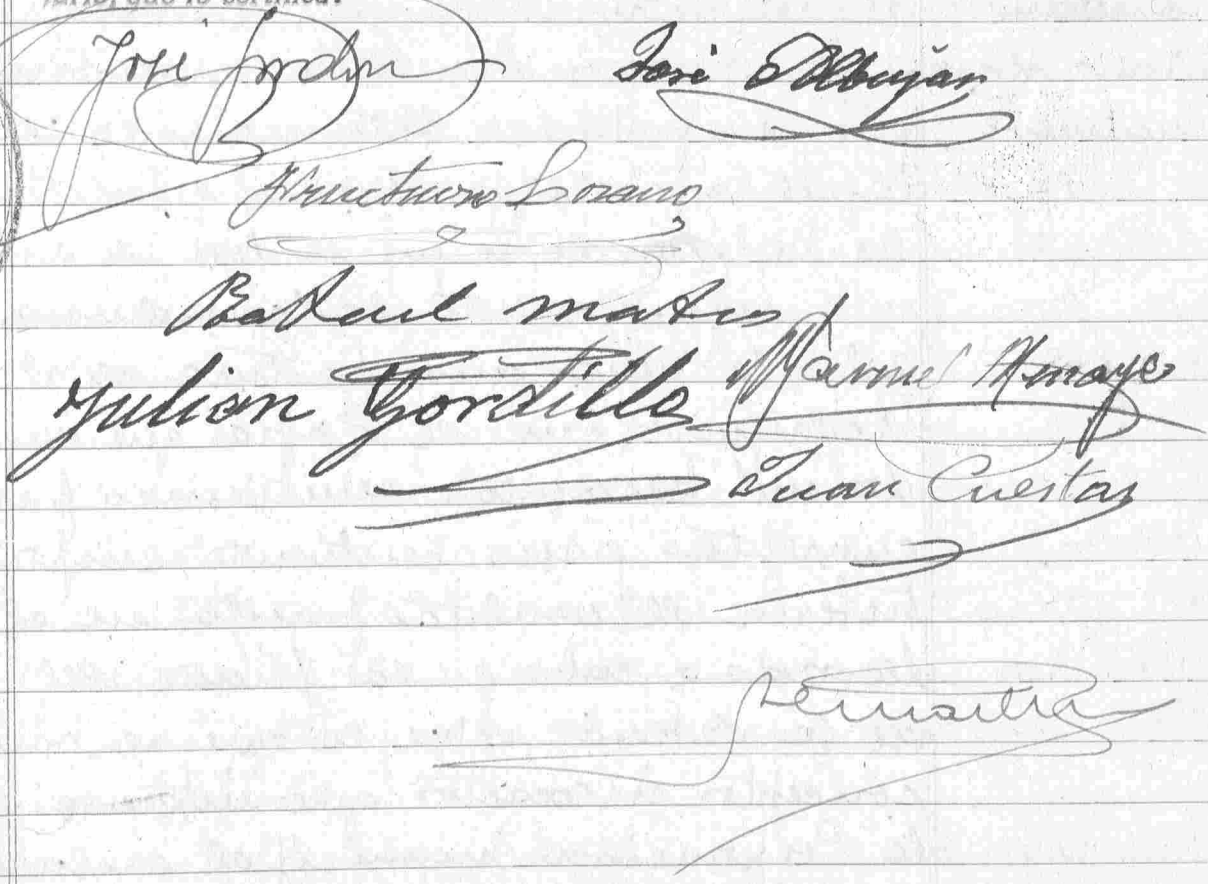 que lo
José Jordan José Albuján
Fructuoso Lozano
Batuel mateos
Julian Gordillo Manuel Amaya
Juan Cuestas